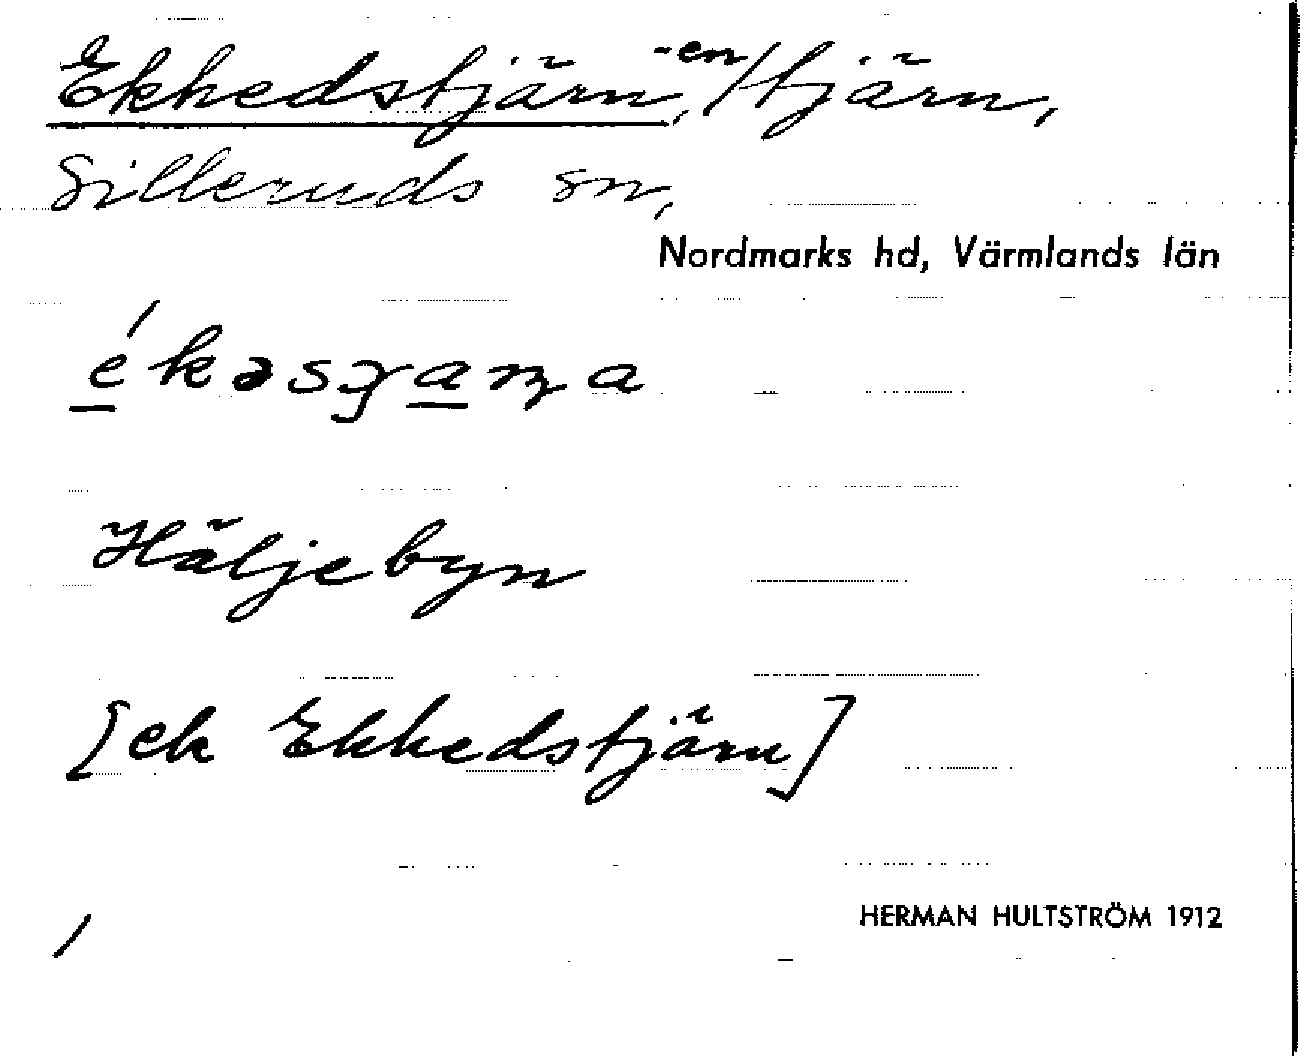 Ekhedstjärn, -en/tjärn,
Silleruds sn,
Nordmarks hd, Värmlands län
Häljebyn
[ek Ekhedstjärn]
HERMAN HULTSTRÖM 1912